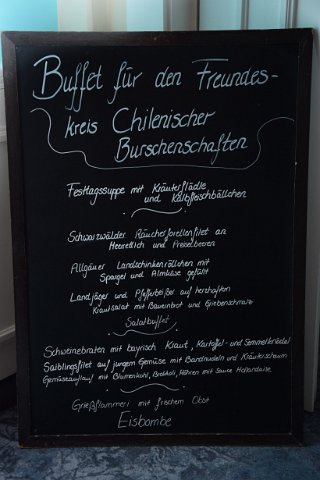 Buffet für den Freundes-
kreis Chilenischer
Burschenschaften
Festtagssuppe mit Kräuterflädle
und Kalbfleischbällchen
Schwarzwälder Räucherforellenfilet an
Meerettich und Preiselbeeren
Allgäuer Landschinkenröllchen mit
Spargel und Almkäse gefüllt
Landjäger und Pfefferbeißer auf herzhaften
Krautsalat mit Bauernbrot und Griebenschmalz
Salatbuffet
Schweinebraten mit bayrisch Kraut, Kartoffel- und Semmelknödel
Saiblingsfilet auf jungem Gemüse mit Bandnudeln und Kräuterschaum
Gemüseauflauf mit Blumenkohl, Brokkoli, Möhren mit Sauce Hollandaise
Grießflammeri mit frischem Obst
Eisbombe